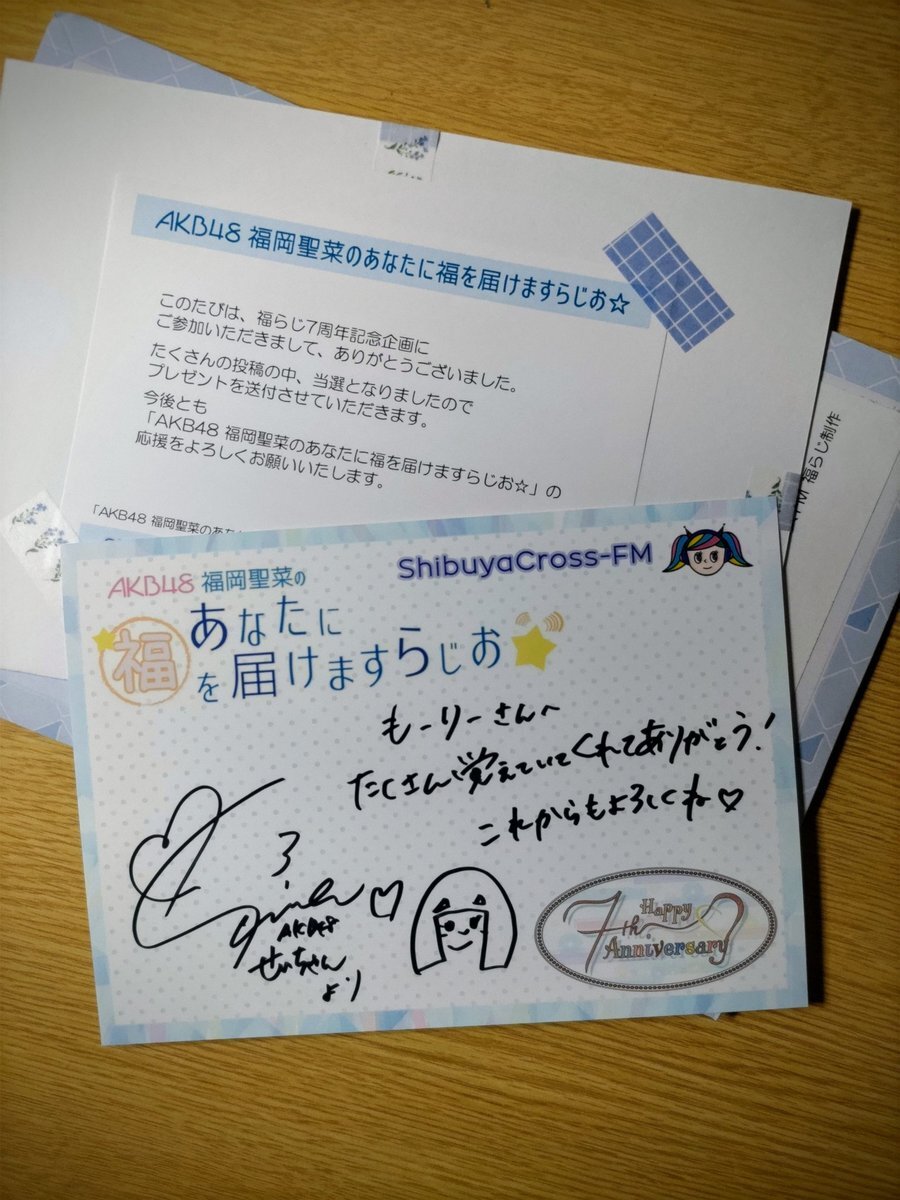 AKB48 福岡聖菜のあなたに福を届けますらじお☆
このたびは、福らじ7周年記念企画に
ご参加いただきまして、ありがとうございました。
たくさんの投稿の中、当選となりましたので
プレゼントを送付させていただきます。
今後とも
「AKB48 福岡聖菜のあなたに福を届けますらじお☆」の
応援をよろしくお願いいたします。
「AKB48 福岡聖菜のあな
FM 福らじ制作
ShibuyaCross-FM
AKB48 福岡聖菜の
あなたに
福を届けますらじお
もーりーさんへ
たくさん覚えていてくれてありがとう!
これからもよろしくね♡
AKB48
せいちゃん
より
Happy
7th
Anniversary